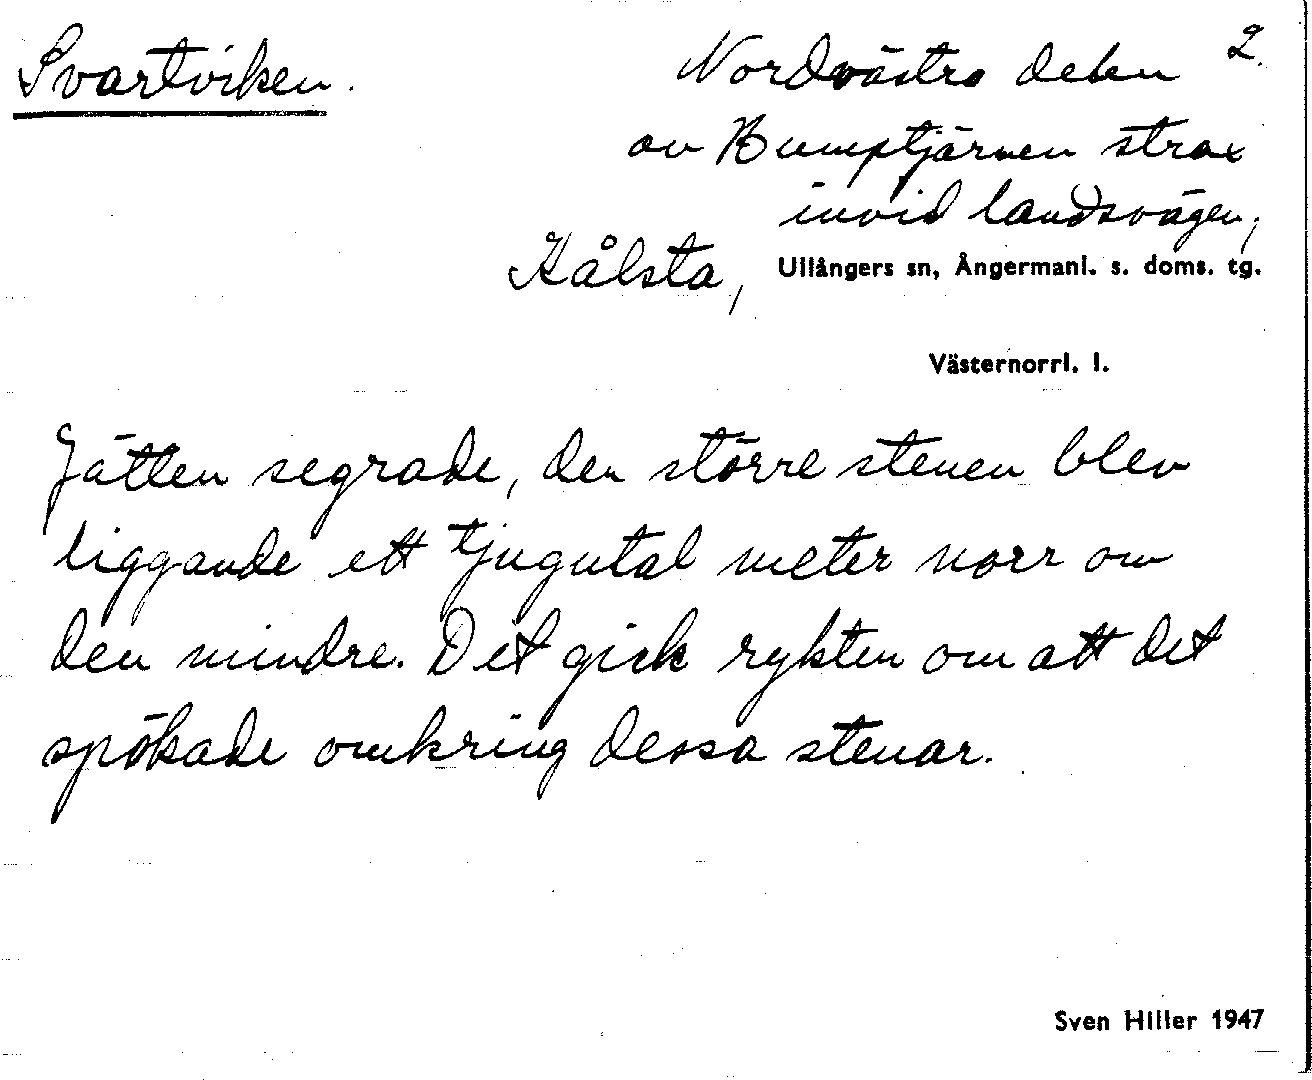 Svartviken.
Nordvästra delen 2.
av Bumptjärnen strax
invid landsvägen,
Kålsta, Ullångers sn, Ångermanl. s. doms. tg.
Västernorrl. l.
Jätten segrade, den större stenen blev
liggande ett tjugutal meter norr om
den mindre. Det gick rykten om att det
spökade omkring dessa stenar.
Sven Hiller 1947